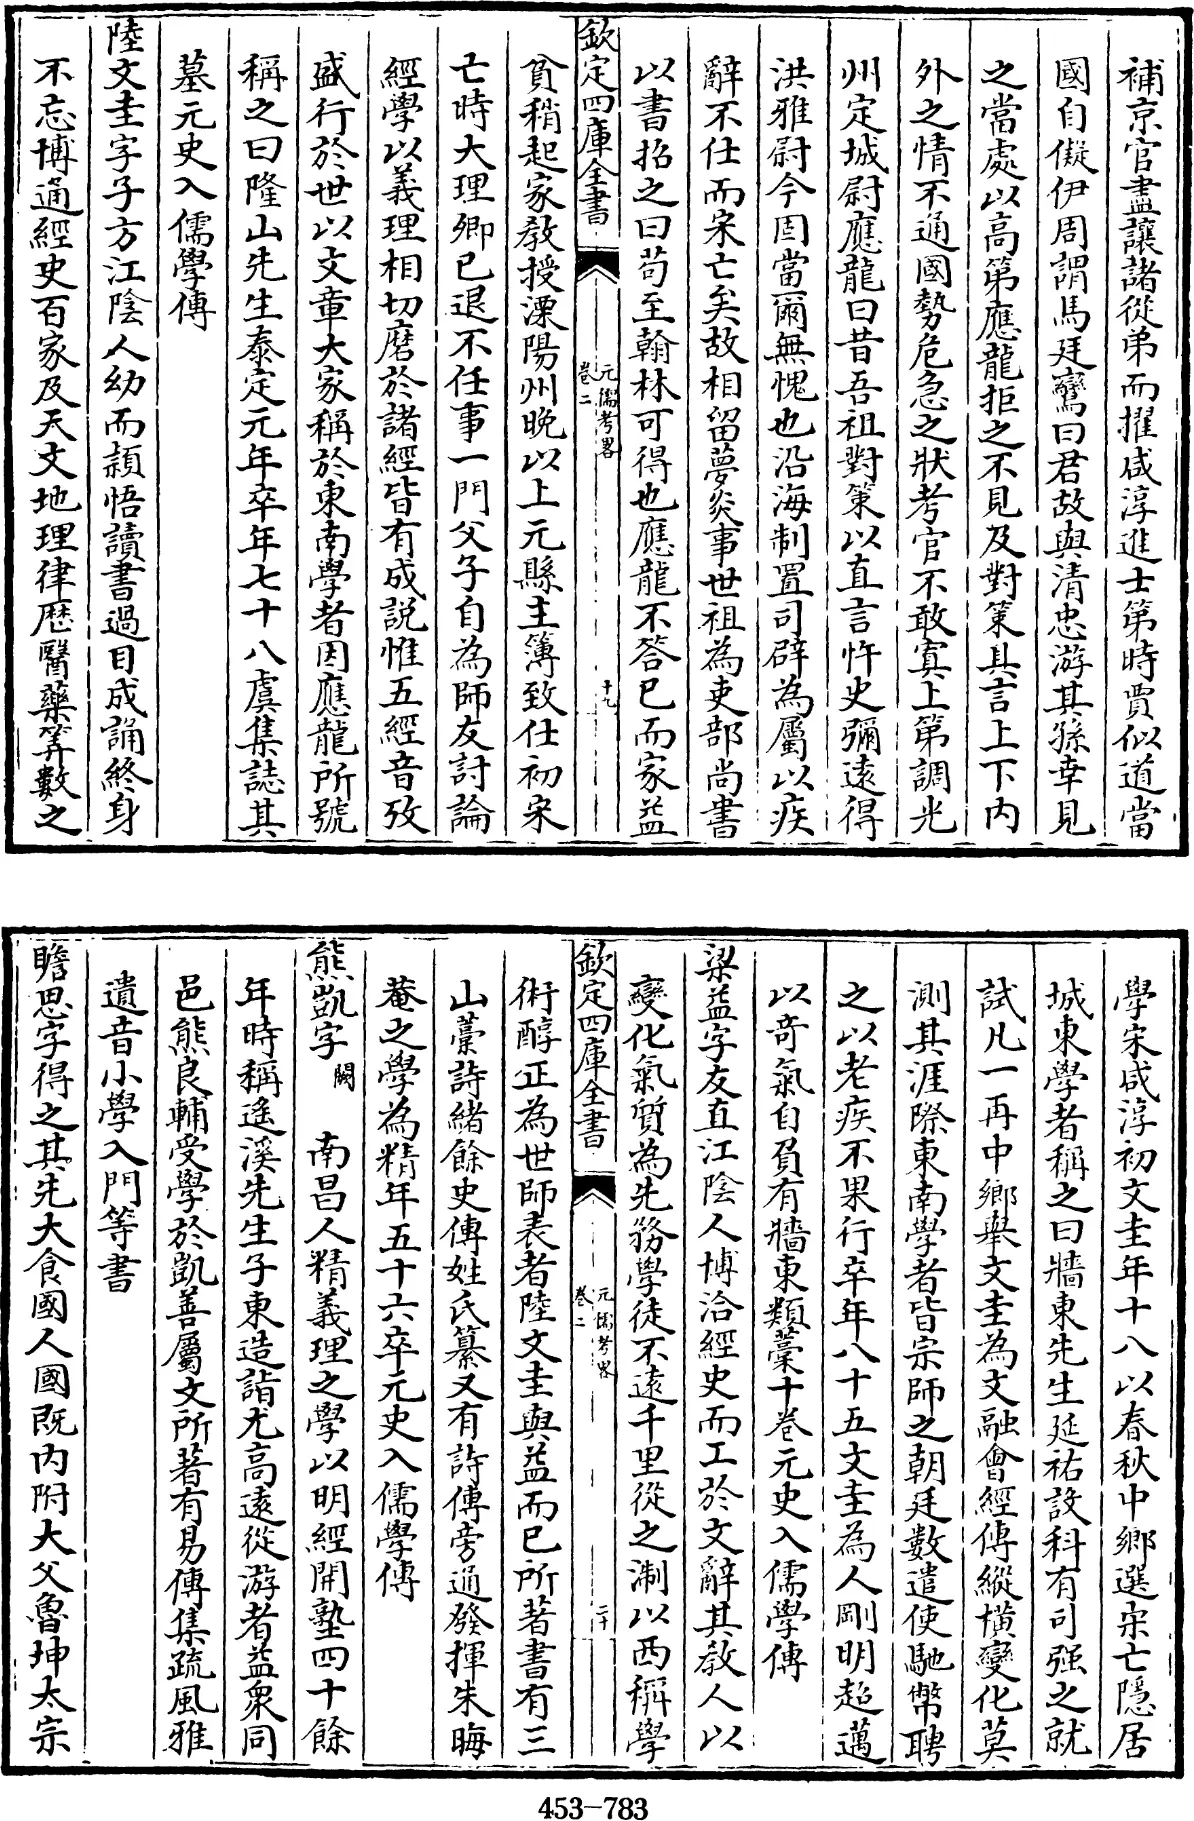 補京官盡讓諸從弟而擢咸淳進士第時賈似道當
國自儗伊周謂馬廷鸞曰君故與清忠游其孫幸見
之當處以高第應龍拒之不見及對策具言上下内
外之情不通國勢危急之狀考官不敢寘上第調光
州定城尉應龍曰昔吾祖對策以直言忤史彌遠得
洪雅尉今固當爾無愧也沿海制置司辟為屬以疾
辭不仕而宋亡矣故相留夢炎事世祖為吏部尚書
以書招之曰苟至翰林可得也應龍不答已而家益
欽定四庫全書
元儒考畧
卷二
十九
貧稍起家敎授溧陽州晚以上元縣主簿致仕初宋
亡時大理卿已退不任事一門父子自為師友討論
經學以義理相切磨於諸經皆有成説惟五經音攷
盛行於世以文章大家稱於東南學者因應龍所號
稱之曰隆山先生泰定元年卒年七十八虞集誌其
墓元史入儒學傳
陸文圭字子方江陰人幼而頴悟讀書過目成誦終身
不忘博通經史百家及天文地理律歴醫藥筭數之
學宋咸淳初文圭年十八以春秋中鄉選宋亡隱居
城東學者稱之曰牆東先生延祐設科有司强之就
試凡一再中鄉舉文圭為文融會經傳縱横變化莫
測其涯際東南學者皆宗師之朝廷數遣使馳幣聘
之以老疾不果行卒年八十五文圭為人剛明超邁
以奇氣自負有牆東類藳十卷元史入儒學傳
梁益字友直江陰人博洽經史而工於文辭其敎人以
變化氣質為先務學徒不遠千里從之淛以西稱學
欽定四庫全書
元儒考畧
卷二
二十
術醇正為世師表者陸文圭與益而已所著書有三
山藳詩緒餘史傳姓氏纂又有詩傳旁通發揮朱晦
菴之學為精年五十六卒元史入儒學傳
熊凱字闕南昌人精義理之學以明經開塾四十餘
年時稱遙溪先生子東造詣尤高遠從游者益衆同
邑熊良輔受學於凱善屬文所著有易傳集疏風雅
遺音小學入門等書
贍思字得之其先大食國人國既内附大父魯坤太宗
453-783